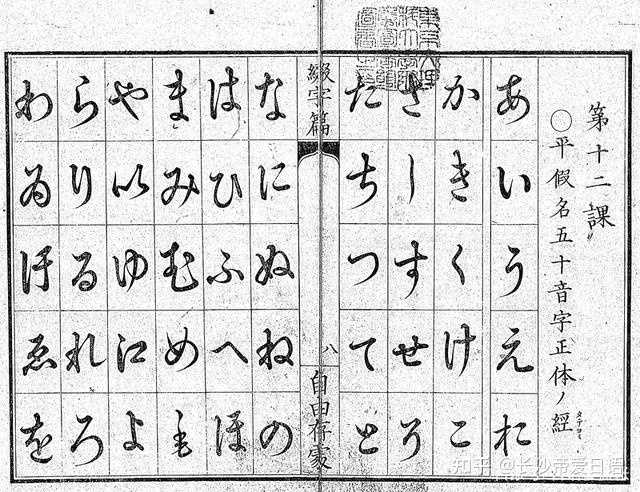 第十二課
○平假名五十音字正体ノ經
タテヨミ
あいうえお
かきくけこ
さしすせそ
たちつてと
綴字篇
八
なにぬねの
はひふへほ
まみむめも
や以ゆ江よ
らりるれろ
わゐ汙ゑを
知乎 @长沙帝爱日语